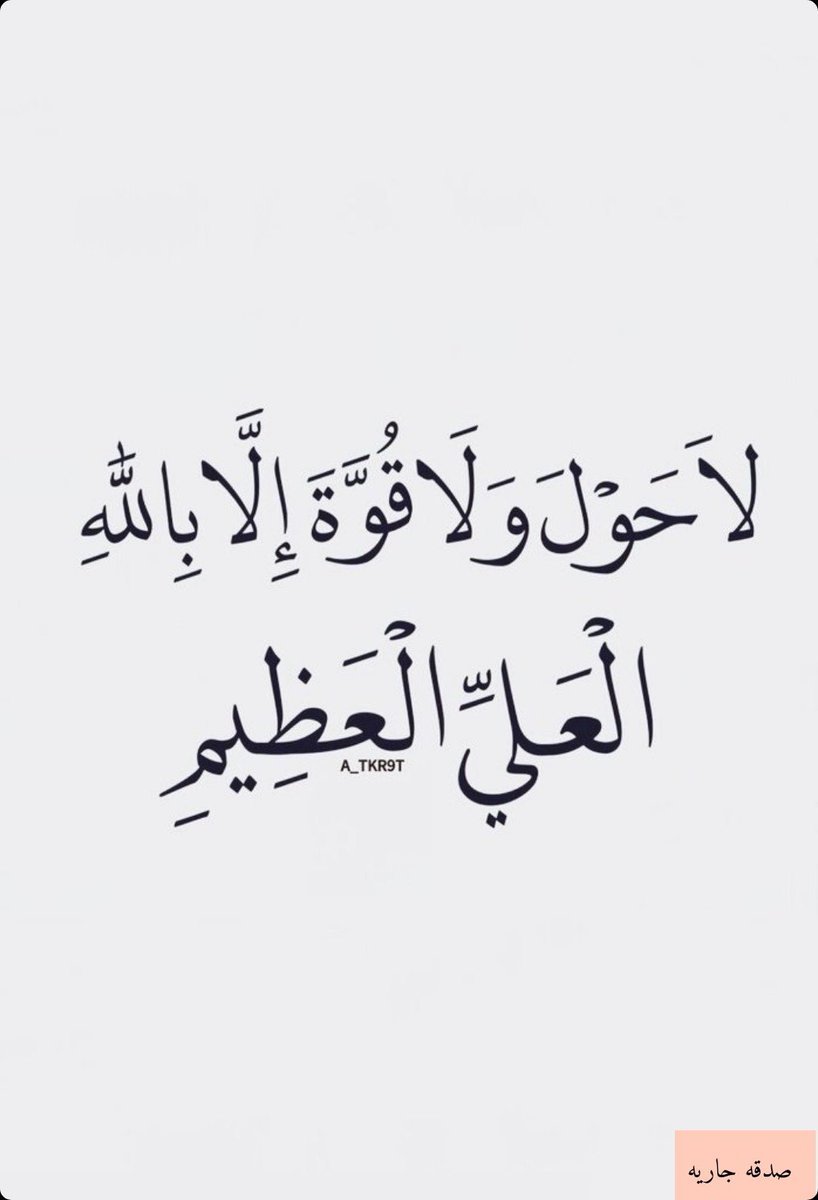 لاَ حَوْلَ وَلَا قُوَّةَ إِلَّا بِاللَّهِ
الْعَلِيِّ الْعَظِيمِ
A_TKR9T
صدقه جاريه